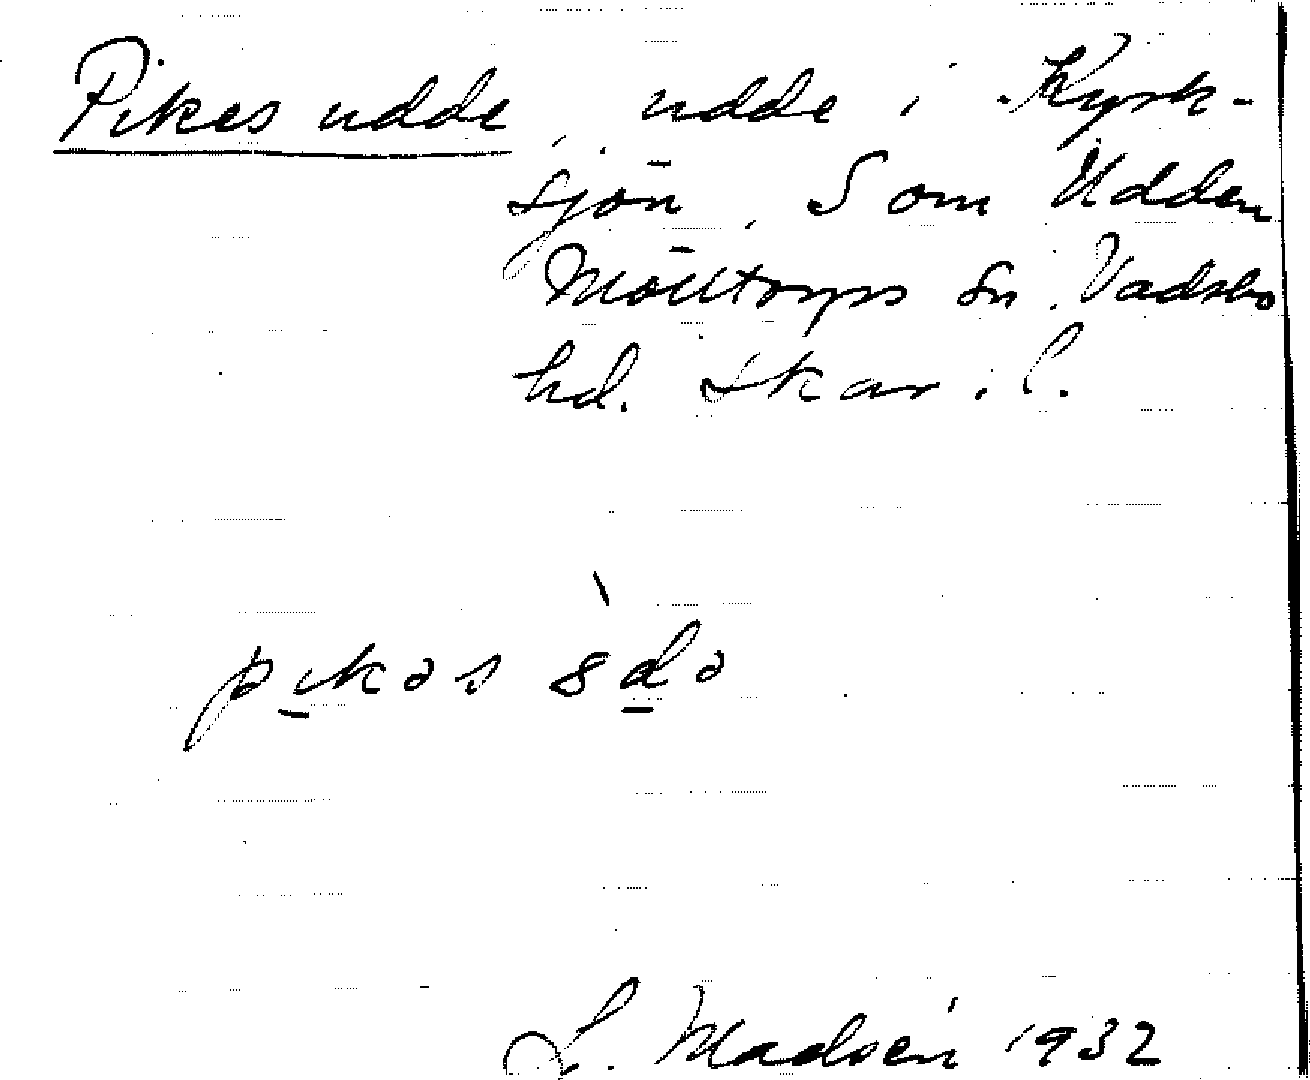 Pikes udde, udde i Kyrk-
sjön, S om Udden
Mölltorps sn. Vadsbo
hd. Skar. l.
pıkəs 8də
L. Madsén 1932